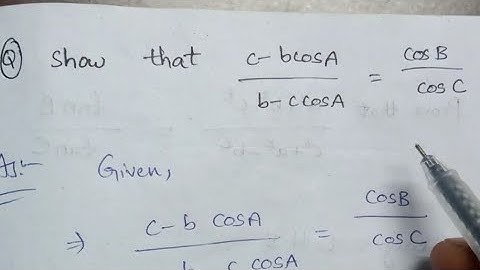 Q Show that (c-bcosA)/(b-ccosA) = cosB/cosC
As:- Given,
⇒ (c-b cosA)/(b-c cosA) = cosB/cosC